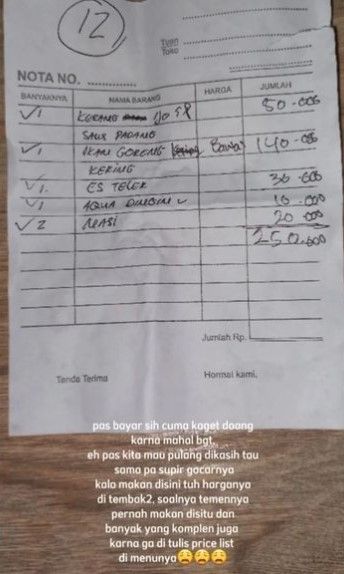 12
Tuan
Toko
NOTA NO.
BANYAKNYA NAMA BARANG HARGA JUMLAH
✓1 KERANG 50.000
SAUS PADANG
✓1 IKAN GORENG Bawal 140.000
KERING
✓1. ES TELER 30.000
✓1 AQUA DINGIN 10.000
✓2 NASI 20.000
250.000
Jumlah Rp.
Tanda Terima Hormat kami,
pas bayar sih cuma kaget doang
karna mahal bgt,
eh pas kita mau pulang dikasih tau
sama pa supir gocarnya
kala makan disini tuh harganya
di tembak2, soalnya temennya
pernah makan disitu dan
banyak yang komplen juga
karna ga di tulis price list
di menunya😩😩😩